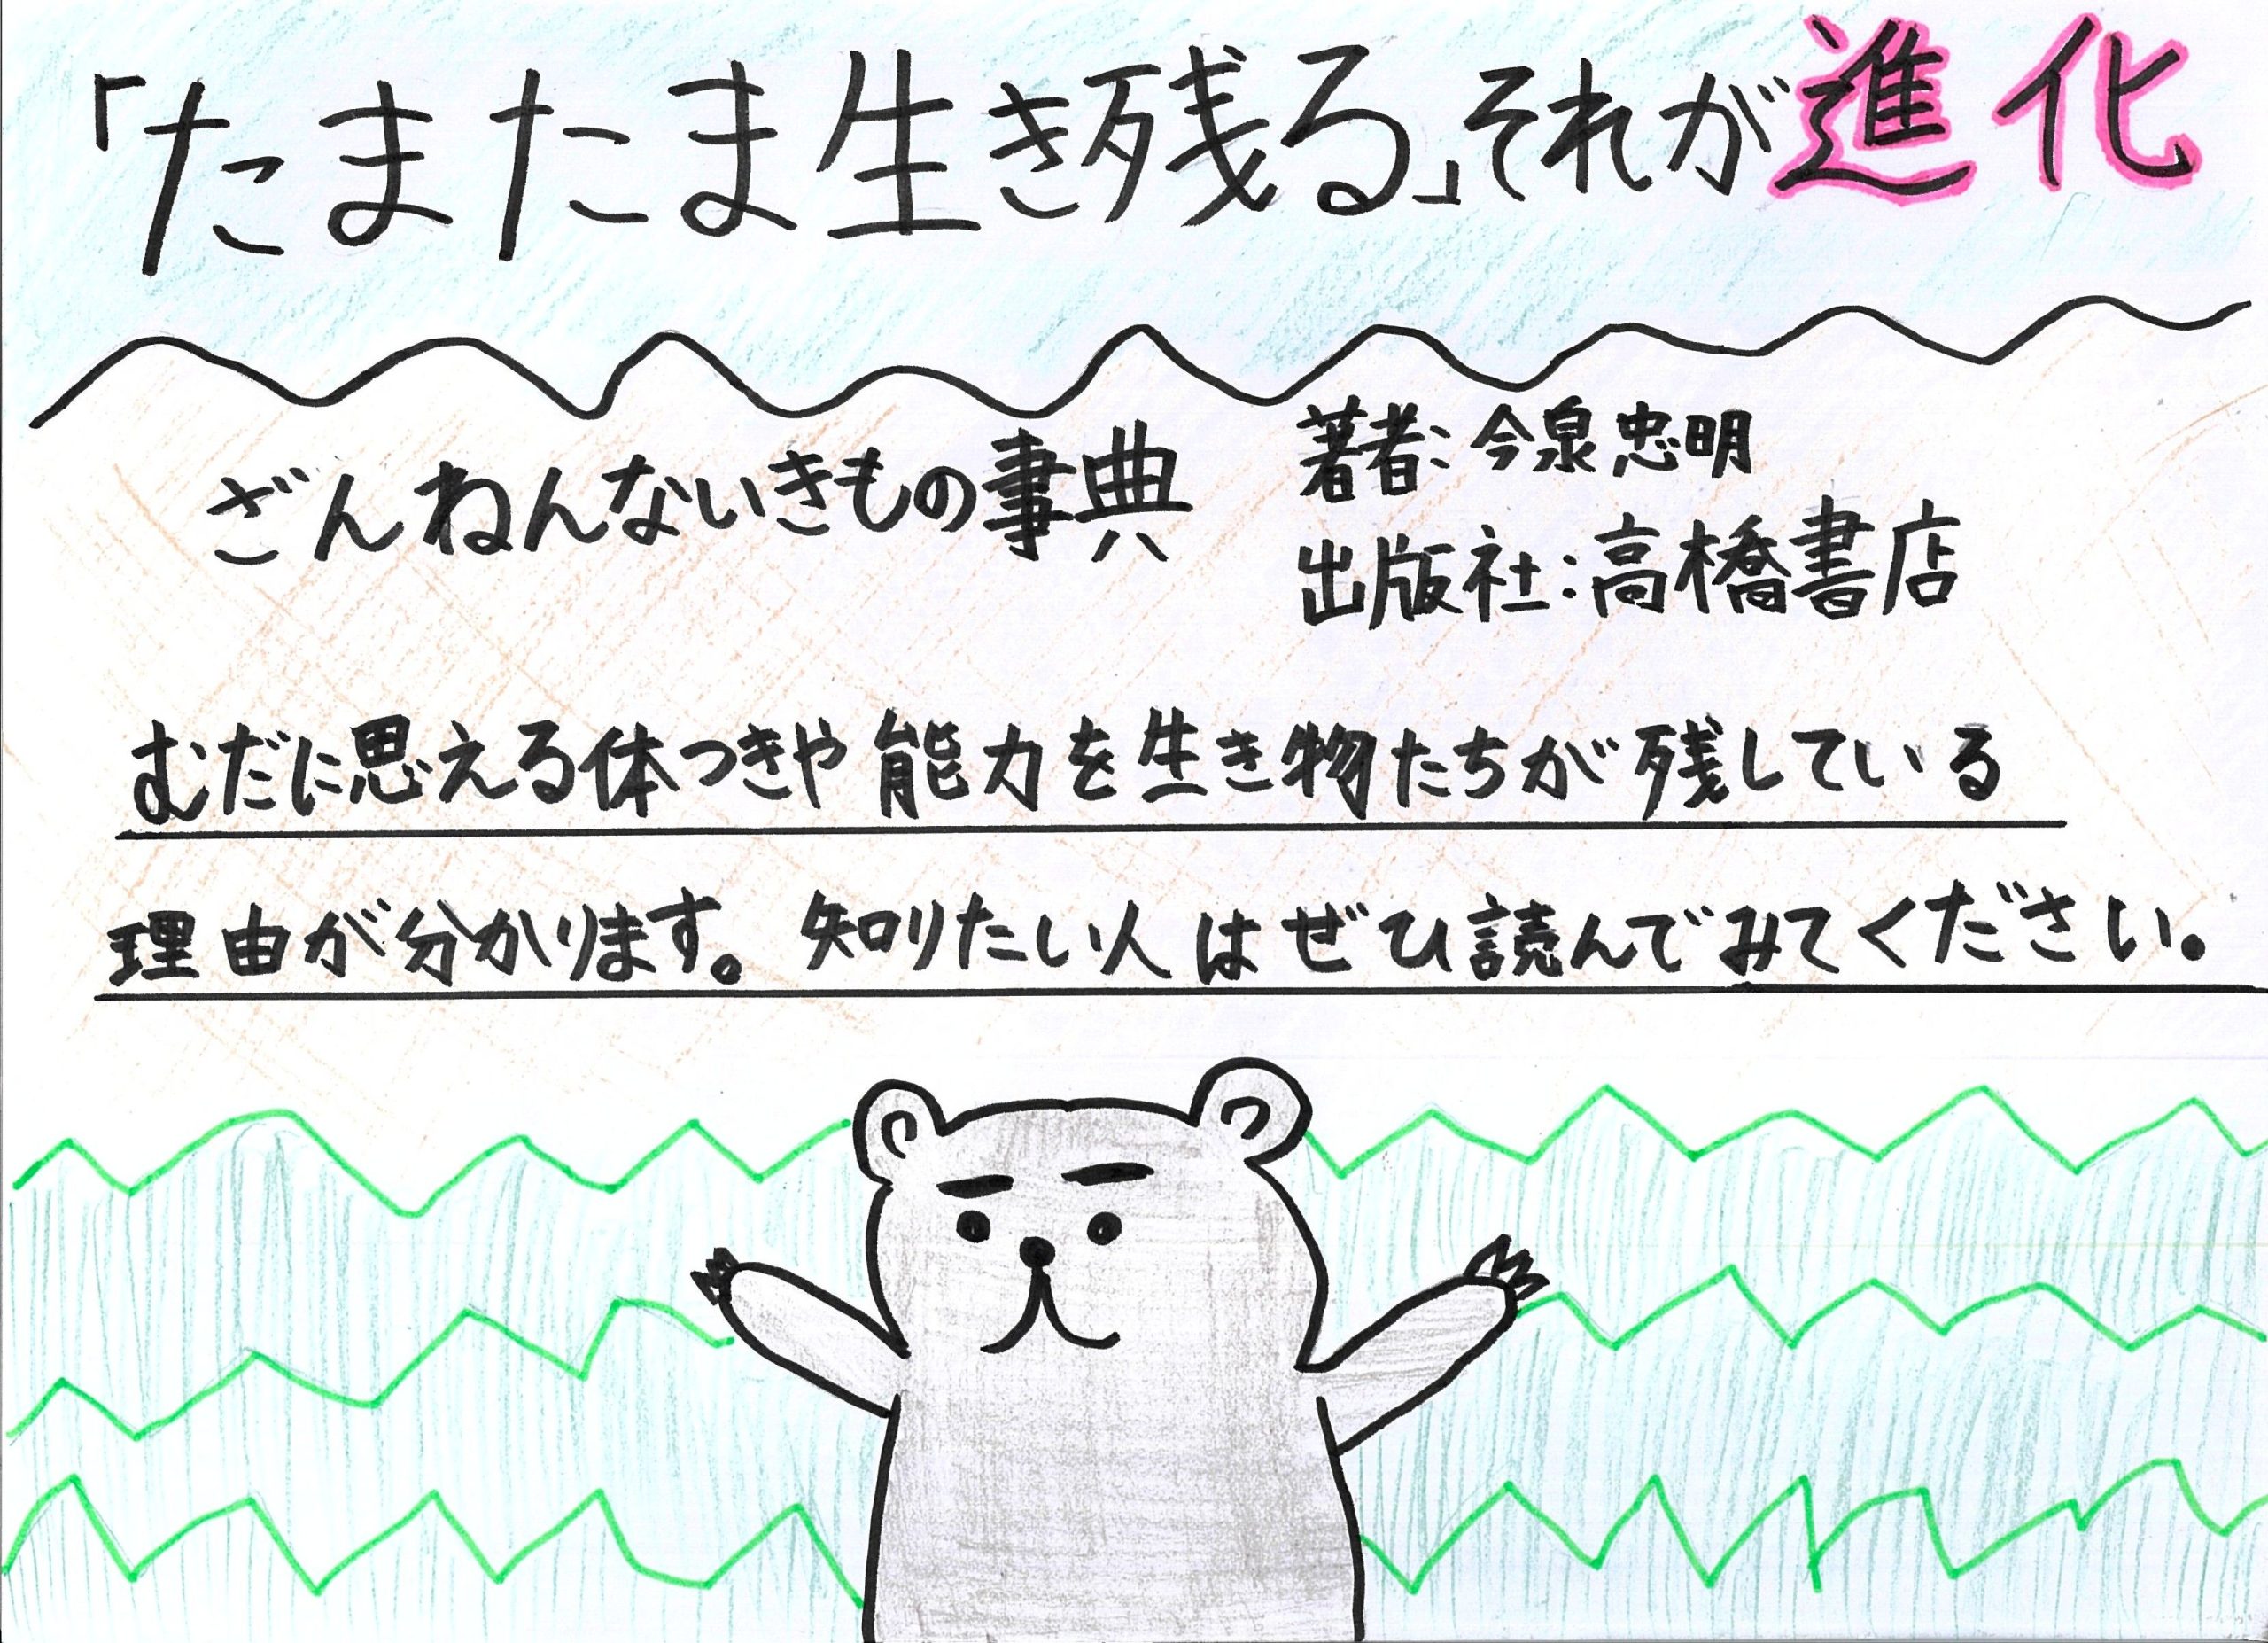 「たまたま生き残る」それが進化
ざんねんないきもの事典
著者:今泉忠明
出版社:高橋書店
むだに思える体つきや能力を生き物たちが残している
理由が分かります。知りたい人はぜひ読んでみてください。